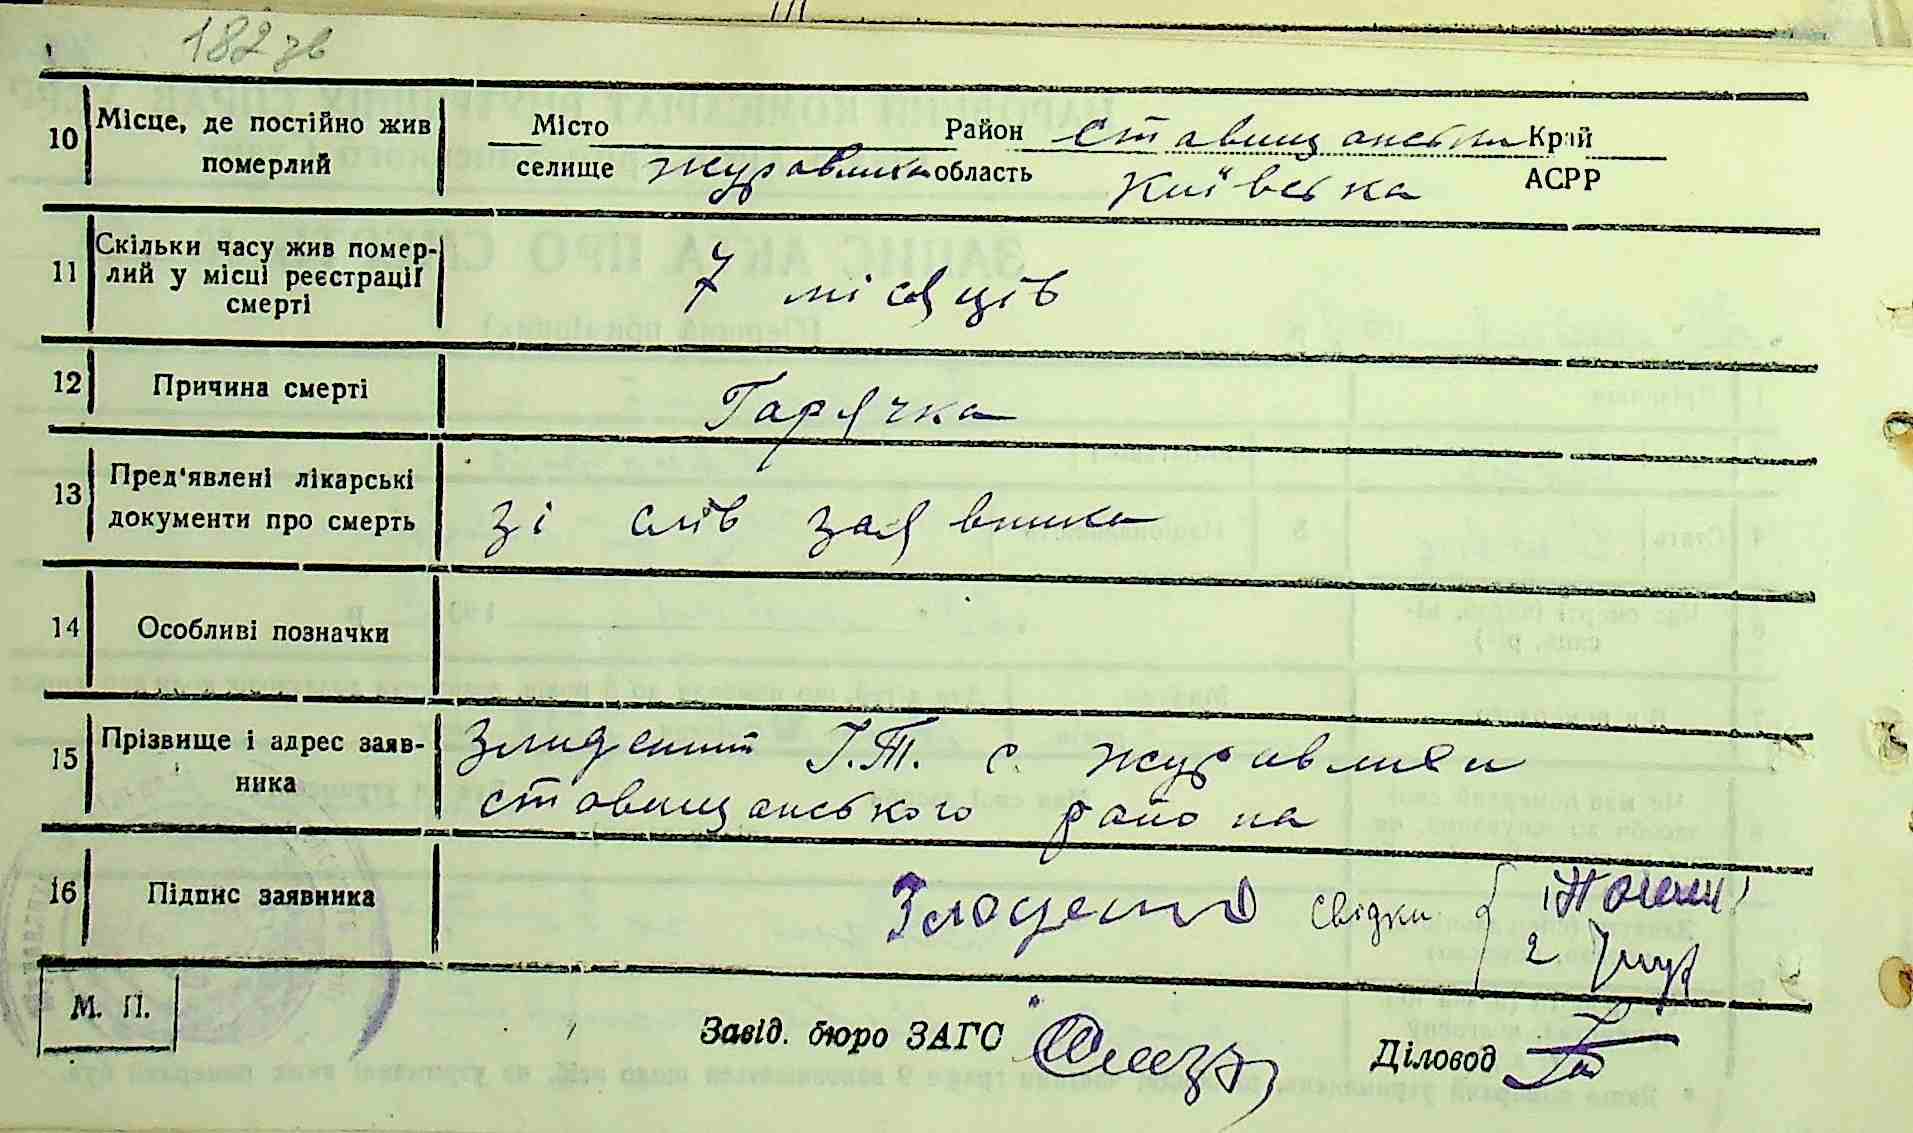 182 зв
10 Місце, де постійно жив померлий
Місто Район Ставищанський Край
селище Журавлиха область Київська АСРР
11 Скільки часу жив помер-
лий у місці реєстрації
смерті
7 місяців
12 Причина смерті Гарячка
13 Пред'явлені лікарські
документи про смерть
зі слів заявника
14 Особливі позначки
15 Прізвище і адрес заяв-
ника
І.Т. с. Журавлихи
Ставищанського району
16 Підпис заявника
свідки
2
М. П.
Завід. бюро ЗАГС Діловод